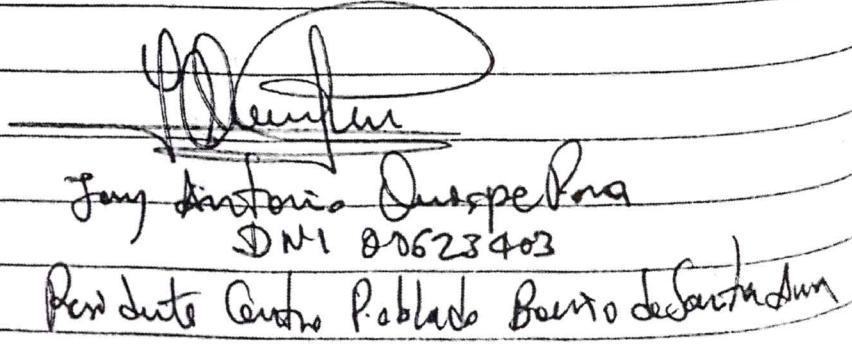 Antonio Quispe
DNI 00623403
Residente Centro Poblado Barrio de Santa Ana